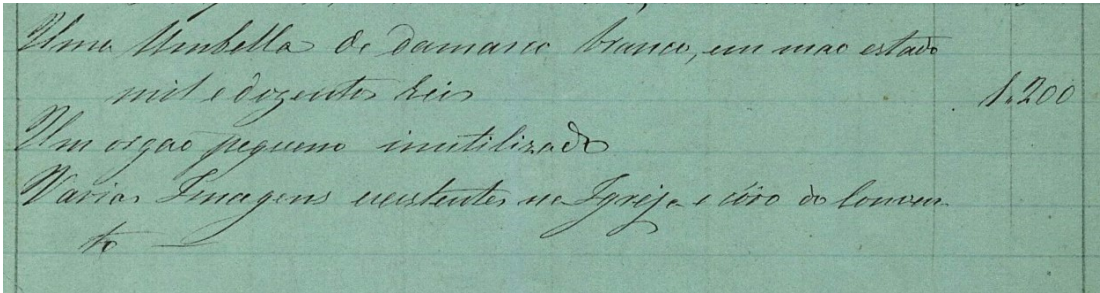 Uma Umbella de damasco branco, em mao estado
mil e dozentos reis 1.200
Um orgao pequeno inutilizado
Varias Imagens existentes na Igreja e côro do Conven
to